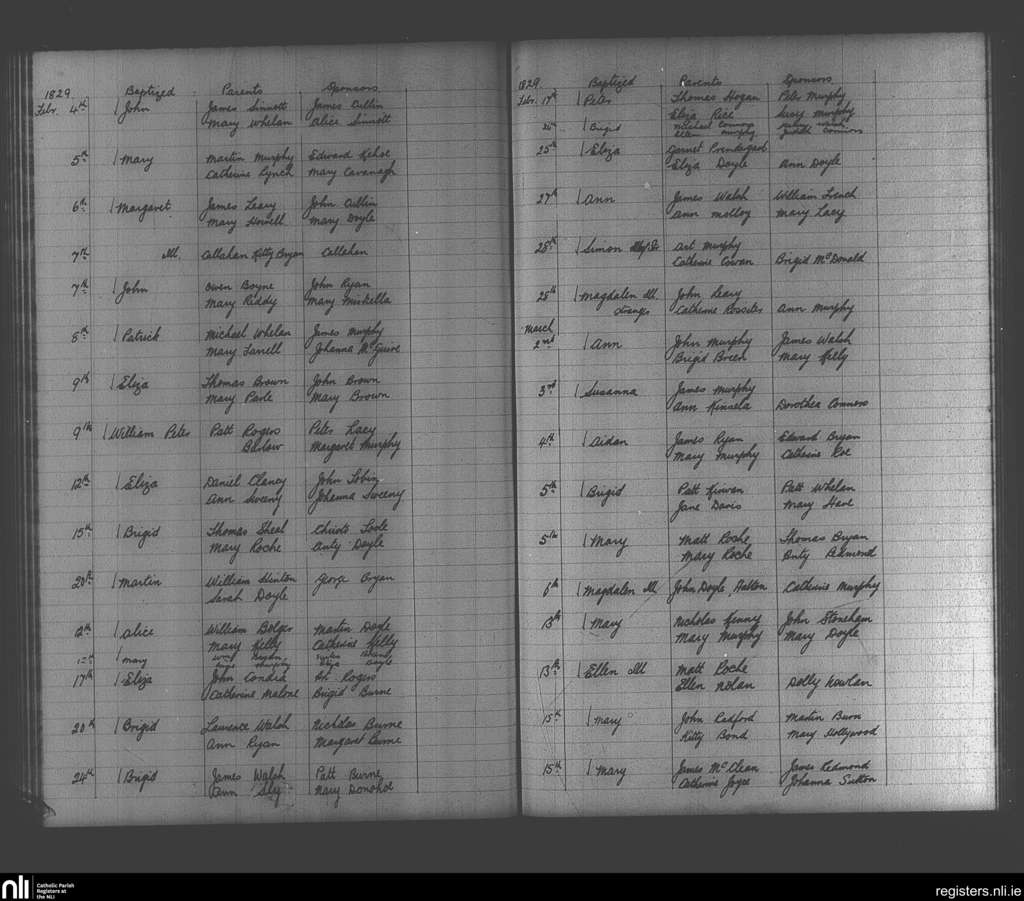 1829 Baptized Parents Sponsors
Febr. 4th John James Sinnott James Cullin
Mary Whelan Alice Sinnott
5th Mary Martin Murphy Edward Kehoe
Catherine Lynch Mary Cavanagh
6th Margaret James Leary John Cullin
Mary Howell Mary Doyle
7th Ill. Callahan Kitty Bryan Callahan
7th John Owen Boyne John Ryan
Mary Reddy Mary
8th Patrick Michael Whelan James Murphy
Mary Farrell Johanna McGuire
9th Eliza Thomas Brown John Brown
Mary Parle Mary Brown
9th William Peter Patt Rogers Peter Lacy
Barlow Margaret Murphy
12th Eliza Daniel Clancy John Tobin
Ann Sweeny Johanna Sweeny
15th Brigid Thomas Sheal Christr Toole
Mary Roche Anty Doyle
20th Martin William Hinton George Bryan
Sarah Doyle
12th Alice William Bolger Martin Doyle
Mary Kelly Catherine Kelly
Mary Bryan
Murphy Eliza Doyle
17th Eliza John Condra Rogers
Catherine Malone Brigid Burne
20th Brigid Laurence Walsh Nicholas Burne
Ann Ryan Margaret Burne
24th Brigid James Walsh Patt Burne
Ann Sly Mary Donohoe
1829 Baptized Parents Sponsors
Febr. 17th Peter Thomas Hogan Peter Murphy
Eliza Rice Murphy
Brigid Michael Connors
Ellen Murphy Judith Connors
25th Eliza Garret Prendergast
Eliza Doyle Ann Doyle
27th Ann James Walsh William French
Ann Molloy Mary Lacy
28th Simon Art Murphy
Catherine Cowan Brigid McDonald
28th Magdalen Ill. John Leary
strangs Catherine Rossiter Ann Murphy
March
2nd Ann John Murphy James Walsh
Brigid Breen Mary Kelly
3rd Susanna James Murphy
Ann Kinsela Dorothea Connors
4th Aidan James Ryan Edward Bryan
Mary Murphy Catherine Roe
5th Brigid Patt Kirwan Patt Whelan
Jane Davis Mary Hare
5th Mary Matt Roche Thomas Bryan
Mary Roche Redmond
6th Magdalen Ill John Doyle, Hatton Catherine Murphy
13th Mary Nicholas Kenny John Stoneham
Mary Murphy Mary Doyle
13th Ellen Ill Matt Roche
Ellen Nolan Dolly Nowlan
15th Mary John Redford Martin Burn
Kitty Bond Mary Hollywood
15th Mary James McClean James Redmond
Catherine Joyce Johanna Sutton
nli Catholic Parish
Registers at
the NLI
registers.nli.ie